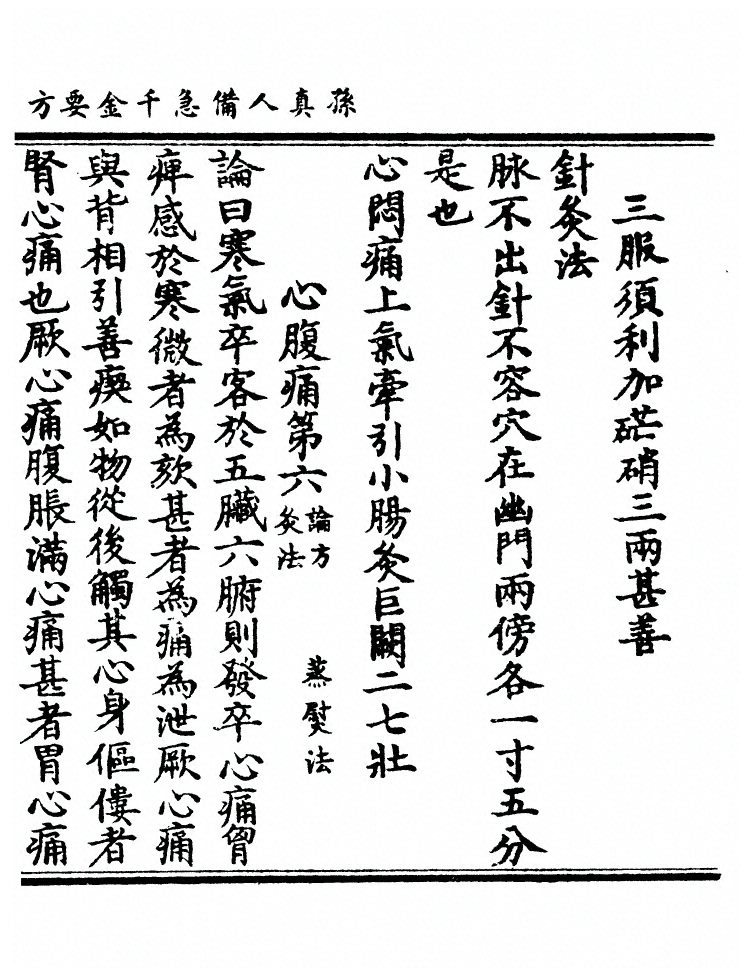 孫真人備急千金要方
三服須利加茫硝三兩甚善
針灸法
脉不出針不容穴在幽門兩傍各一寸五分
是也
心悶痛上氣牽引小腸灸巨闕二七壯
心腹痛第六 論方 灸法 蒸熨法
論曰寒氣卒客於五臟六腑則發卒心痛胷
痺感於寒微者為欬甚者為痛為泄厥心痛
與背相引善瘈如物從後觸其心身傴僂者
腎心痛也厥心痛腹脹滿心痛甚者胃心痛